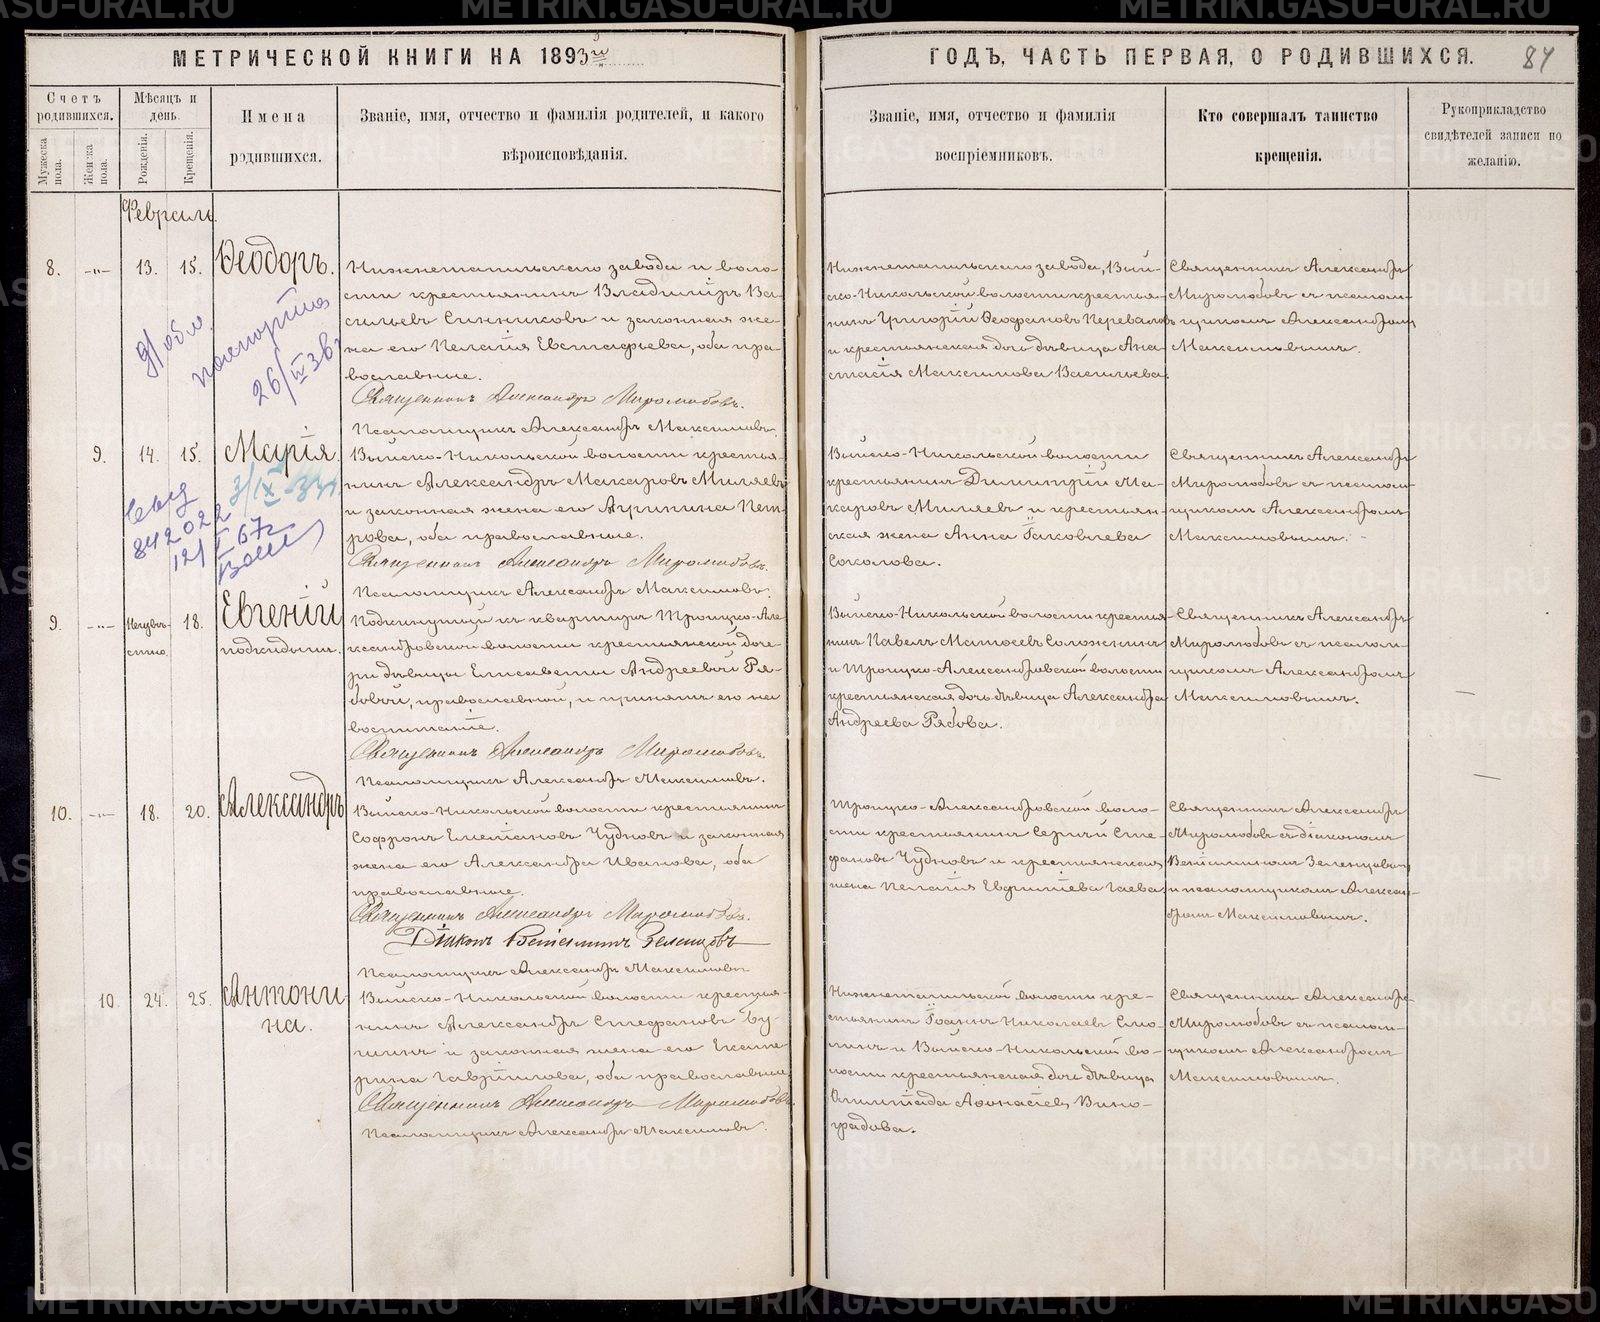 МЕТРИЧЕСКОЙ КНИГИ НА 1893й
ГОДЪ, ЧАСТЬ ПЕРВАЯ, О РОДИВШИХСЯ.
84
Счетъ родившихся.
Мѣсяцъ и день.
Имена родившихся.
Званіе, имя, отчество и фамилія родителей, и какого
вѣроисповѣданія.
Званіе, имя, отчество и фамилія
воспріемниковъ.
Кто совершалъ таинство
крещенія.
Рукоприкладство
свидѣтелей записи по
желанію.
Мужеска пола.
Женска пола.
Рожденія.
Крещенія.
Февраль.
8. -"- 13. 15. Ѳеодоръ.
Нижнетагильскаго завода и воло-
сти крестьянинъ Владиміръ Ва-
сильевъ Синниковъ и законная же-
на его Пелагія Евстафьева, оба пра-
вославные.
Священникъ Александръ Миролюбовъ.
Псаломщикъ Александръ Максимовъ.
Нижнетагильскаго завода, Вый-
ско-Никольской волости крестья-
нинъ Григорій Ѳеофановъ Переваловъ
и крестьянская дочь дѣвица Ана-
стасія Максимова Васильева.
Священникъ Александръ
Миролюбовъ съ псалом-
щикомъ Александромъ
Максимовымъ.
паспортта
26/IV 38
9. 14. 15. Марія.
3/IX-33
842022
12/I 67г
Выйско-Никольской волости крестья-
нинъ Александръ Макаровъ Миляевъ
и законная жена его Агрипина Пет-
рова, оба православные.
Священникъ Александръ Миролюбовъ.
Псаломщикъ Александръ Максимовъ.
Выйско-Никольской волости
крестьянинъ Димитрій Ма-
каровъ Миляевъ и крестьян-
ская жена Анна Іаковлева
Соколова.
Священникъ Александръ
Миролюбовъ съ псалом-
щикомъ Александромъ
Максимовымъ.
9. -"- Неизвѣстно 18. Евгеній
подкидышъ.
Подкинутый къ квартирѣ Троицко-Але-
ксандровской волости крестьянской доче-
ри дѣвицы Елисаветы Андреевой Ря-
бовой, православной, и принятъ ею на
воспитаніе.
Священникъ Александръ Миролюбовъ.
Псаломщикъ Александръ Максимовъ.
Выйско-Никольской волости крестья-
нинъ Павелъ Матѳеевъ
и Троицко-Александровской волости
крестьянская дочь дѣвица Александра
Андреева Рябова.
Священникъ Александръ
Миролюбовъ съ псалом-
щикомъ Александромъ
Максимовымъ.
10. -"- 18. 20. Александръ
Выйско-Никольской волости крестьянинъ
Софронъ Чудновъ и законная
жена его Александра Иванова, оба
православные.
Священникъ Александръ Миролюбовъ.
Діаконъ Веніаминъ Зеленцовъ
Псаломщикъ Александръ Максимовъ
Троицко-Александровской воло-
сти крестьянинъ Сергій Сте-
фановъ Чудновъ и крестьянская
жена Пелагія Гаева
Священникъ Александръ
Миролюбовъ съ діакономъ
Веніаминомъ Зеленцовымъ
и псаломщикомъ Алексан-
дромъ Максимовымъ.
10. 24. 25. Антони-
на.
Выйско-Никольской волости крестья-
нинъ Александръ Стефановъ
и законная жена его Екате-
рина Гавріилова, оба православные
Священникъ Александръ Миролюбовъ.
Псаломщикъ Александръ Максимовъ.
Нижнетагильской волости кре-
стьянинъ Іоаннъ Николаевъ
и Выйско-Никольской во-
лости крестьянская дочь дѣвица
Олимпіада Аѳонасіева Вино-
градова.
Священникъ Александръ
Миролюбовъ съ псалом-
щикомъ Александромъ
Максимовымъ.
METRIKI.GASO-URAL.RU